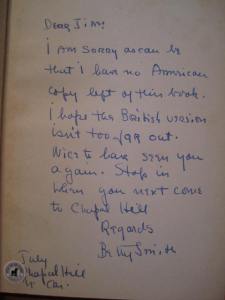 Dear Jim:
I am sorry as can be
that I have no American
copy left of this book.
I hope the British version
isn't too far out.
Nice to have seen you
again. Stop in
when you next come
to Chapel Hill
Regards
Betty Smith
July
Chapel Hill
N. Car.